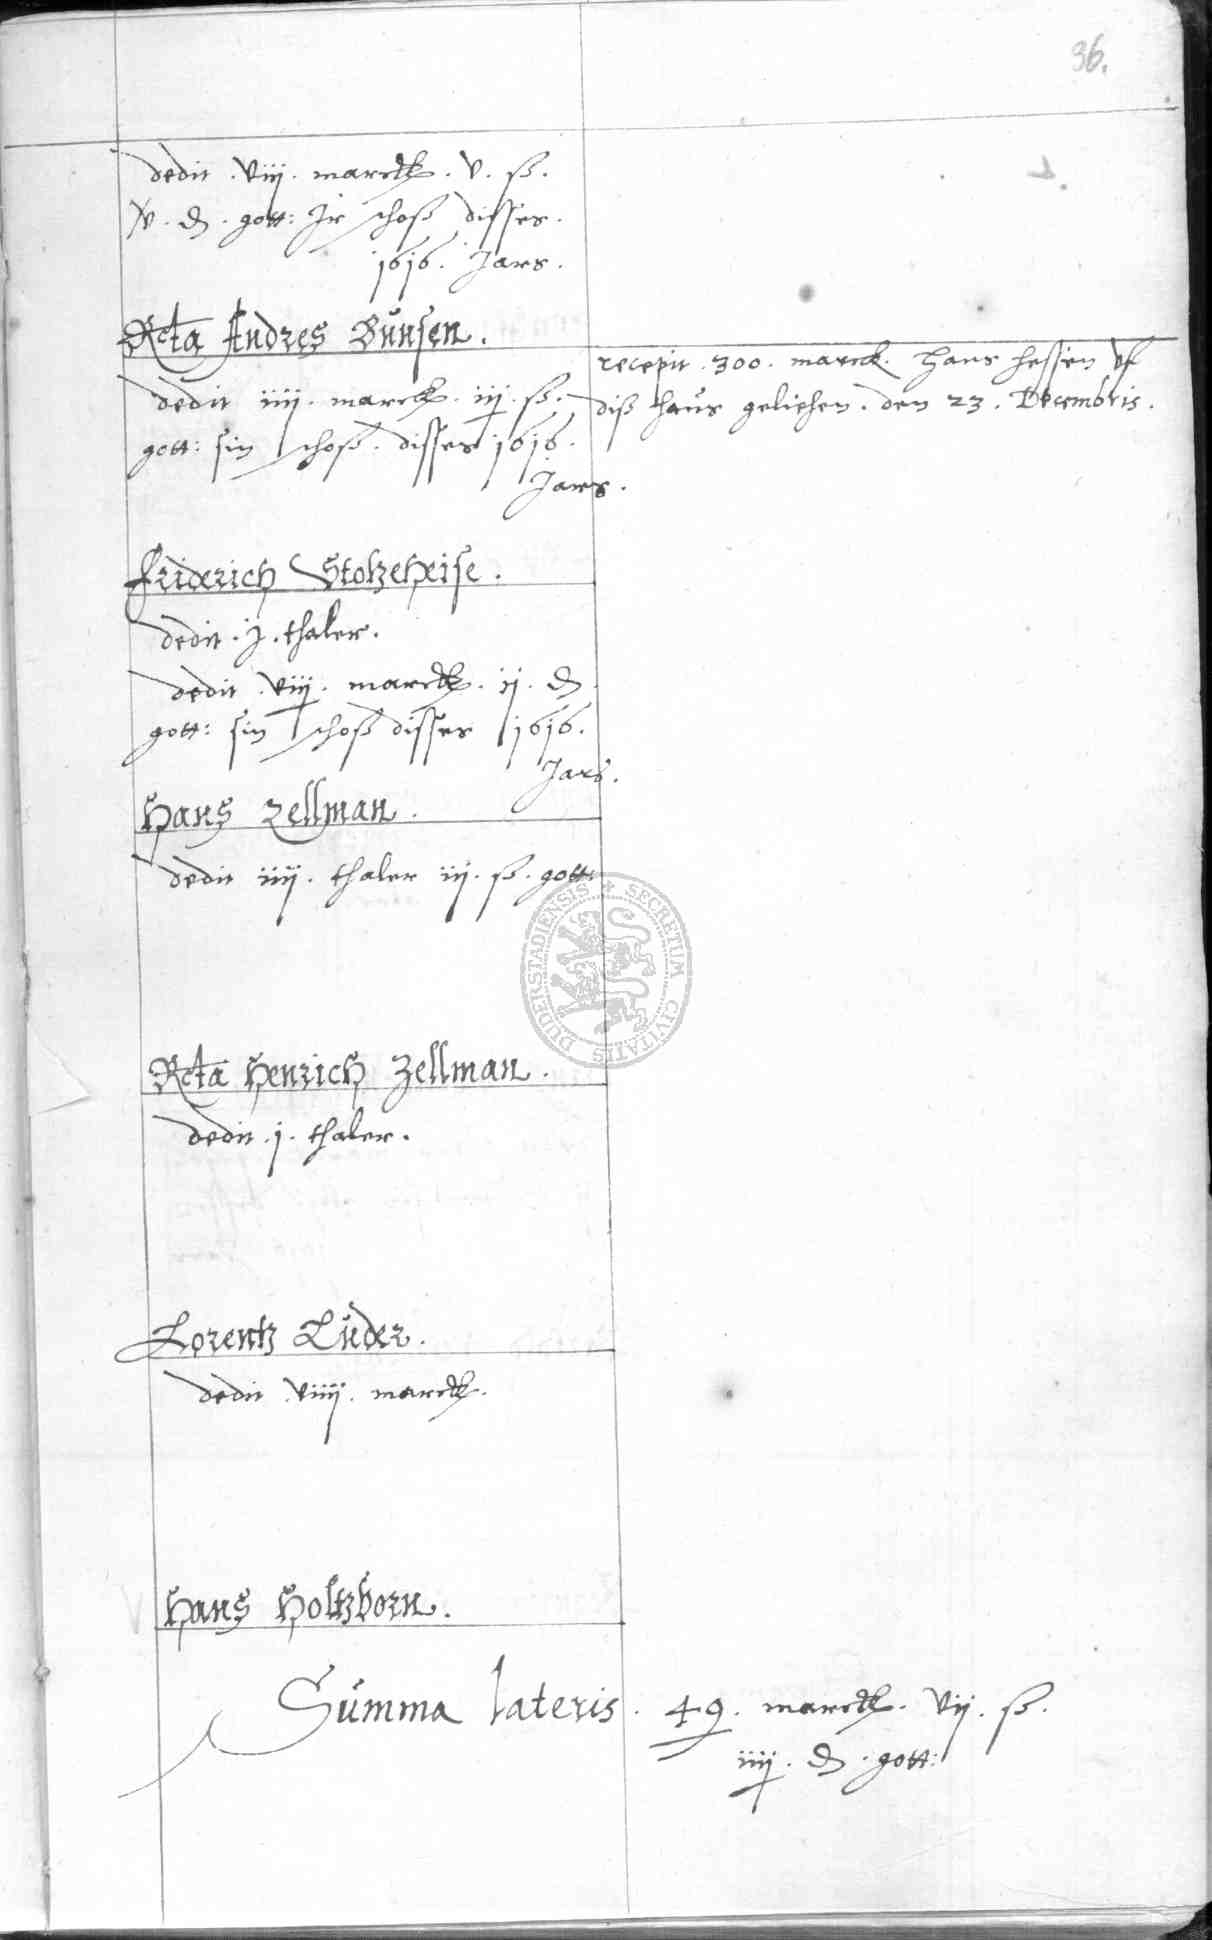 36.
dedit . viij . marck . v . ß .
v . ₰ . gott: Jr schoß disses .
1616 . Jars .
Rcta Andres Bunsen .
recepit . 300 . marck . Hans Hessen vf
dedit iiij . marck . iij . ß .
diß Haus geliehen . den 23 . Decembris .
gott: sin schoß . disses 1616 .
Jars .
Friderich Stolzeheise .
dedit . j . thaler .
dedit . viij . marck . ij . ₰
gott: sin schoß disses 1616 .
Jars .
Hans Zellman .
dedit iiij . thaler iij . ß . gott:
DUDERSTADIENSIS SECRETUM CIVITATIS
Rcta Henrich Zellman .
dedit . j . thaler .
Lorentz Luder .
dedit . viiij . marck .
Hans Holtzborn .
Summa lateris . 49 . marck . vij . ß .
iiij . ₰ . gott: